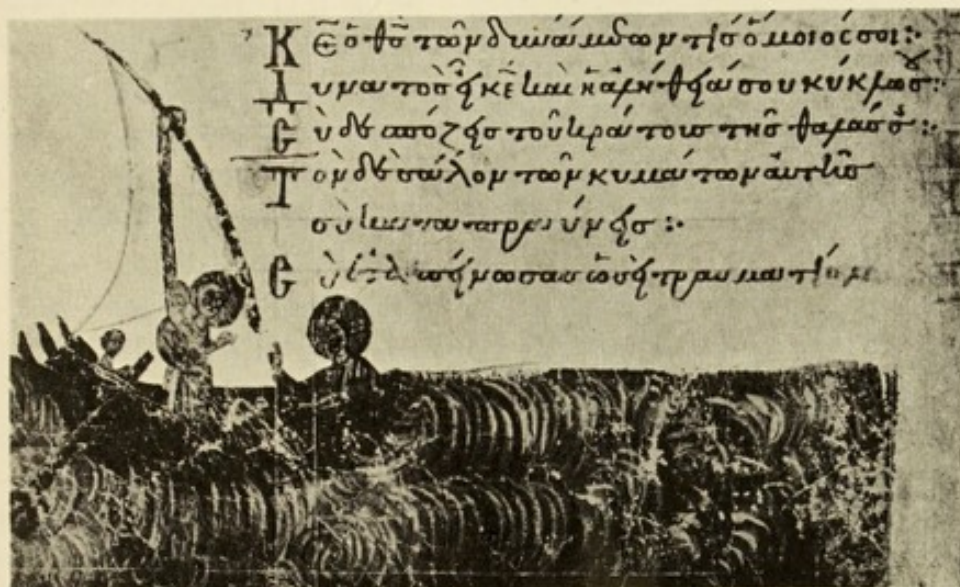 Κε̅ ὁ θς̅ τῶν δυνάμεων τίς ὅμοιός σοι:·
Δυνατὸς εἶ κε̅ καὶ ἡ ἀλήθειά σου κύκλω σ:·
Cὺ δεσπόζεις τοῦ κράτους τῆς θαλάσσ:·
Τὸν δὲ σάλον τῶν κυμάτων αὐτῆς
σὺ καταπραύνεις:·
Cὺ ἐταπείνωσας ὡσεὶ